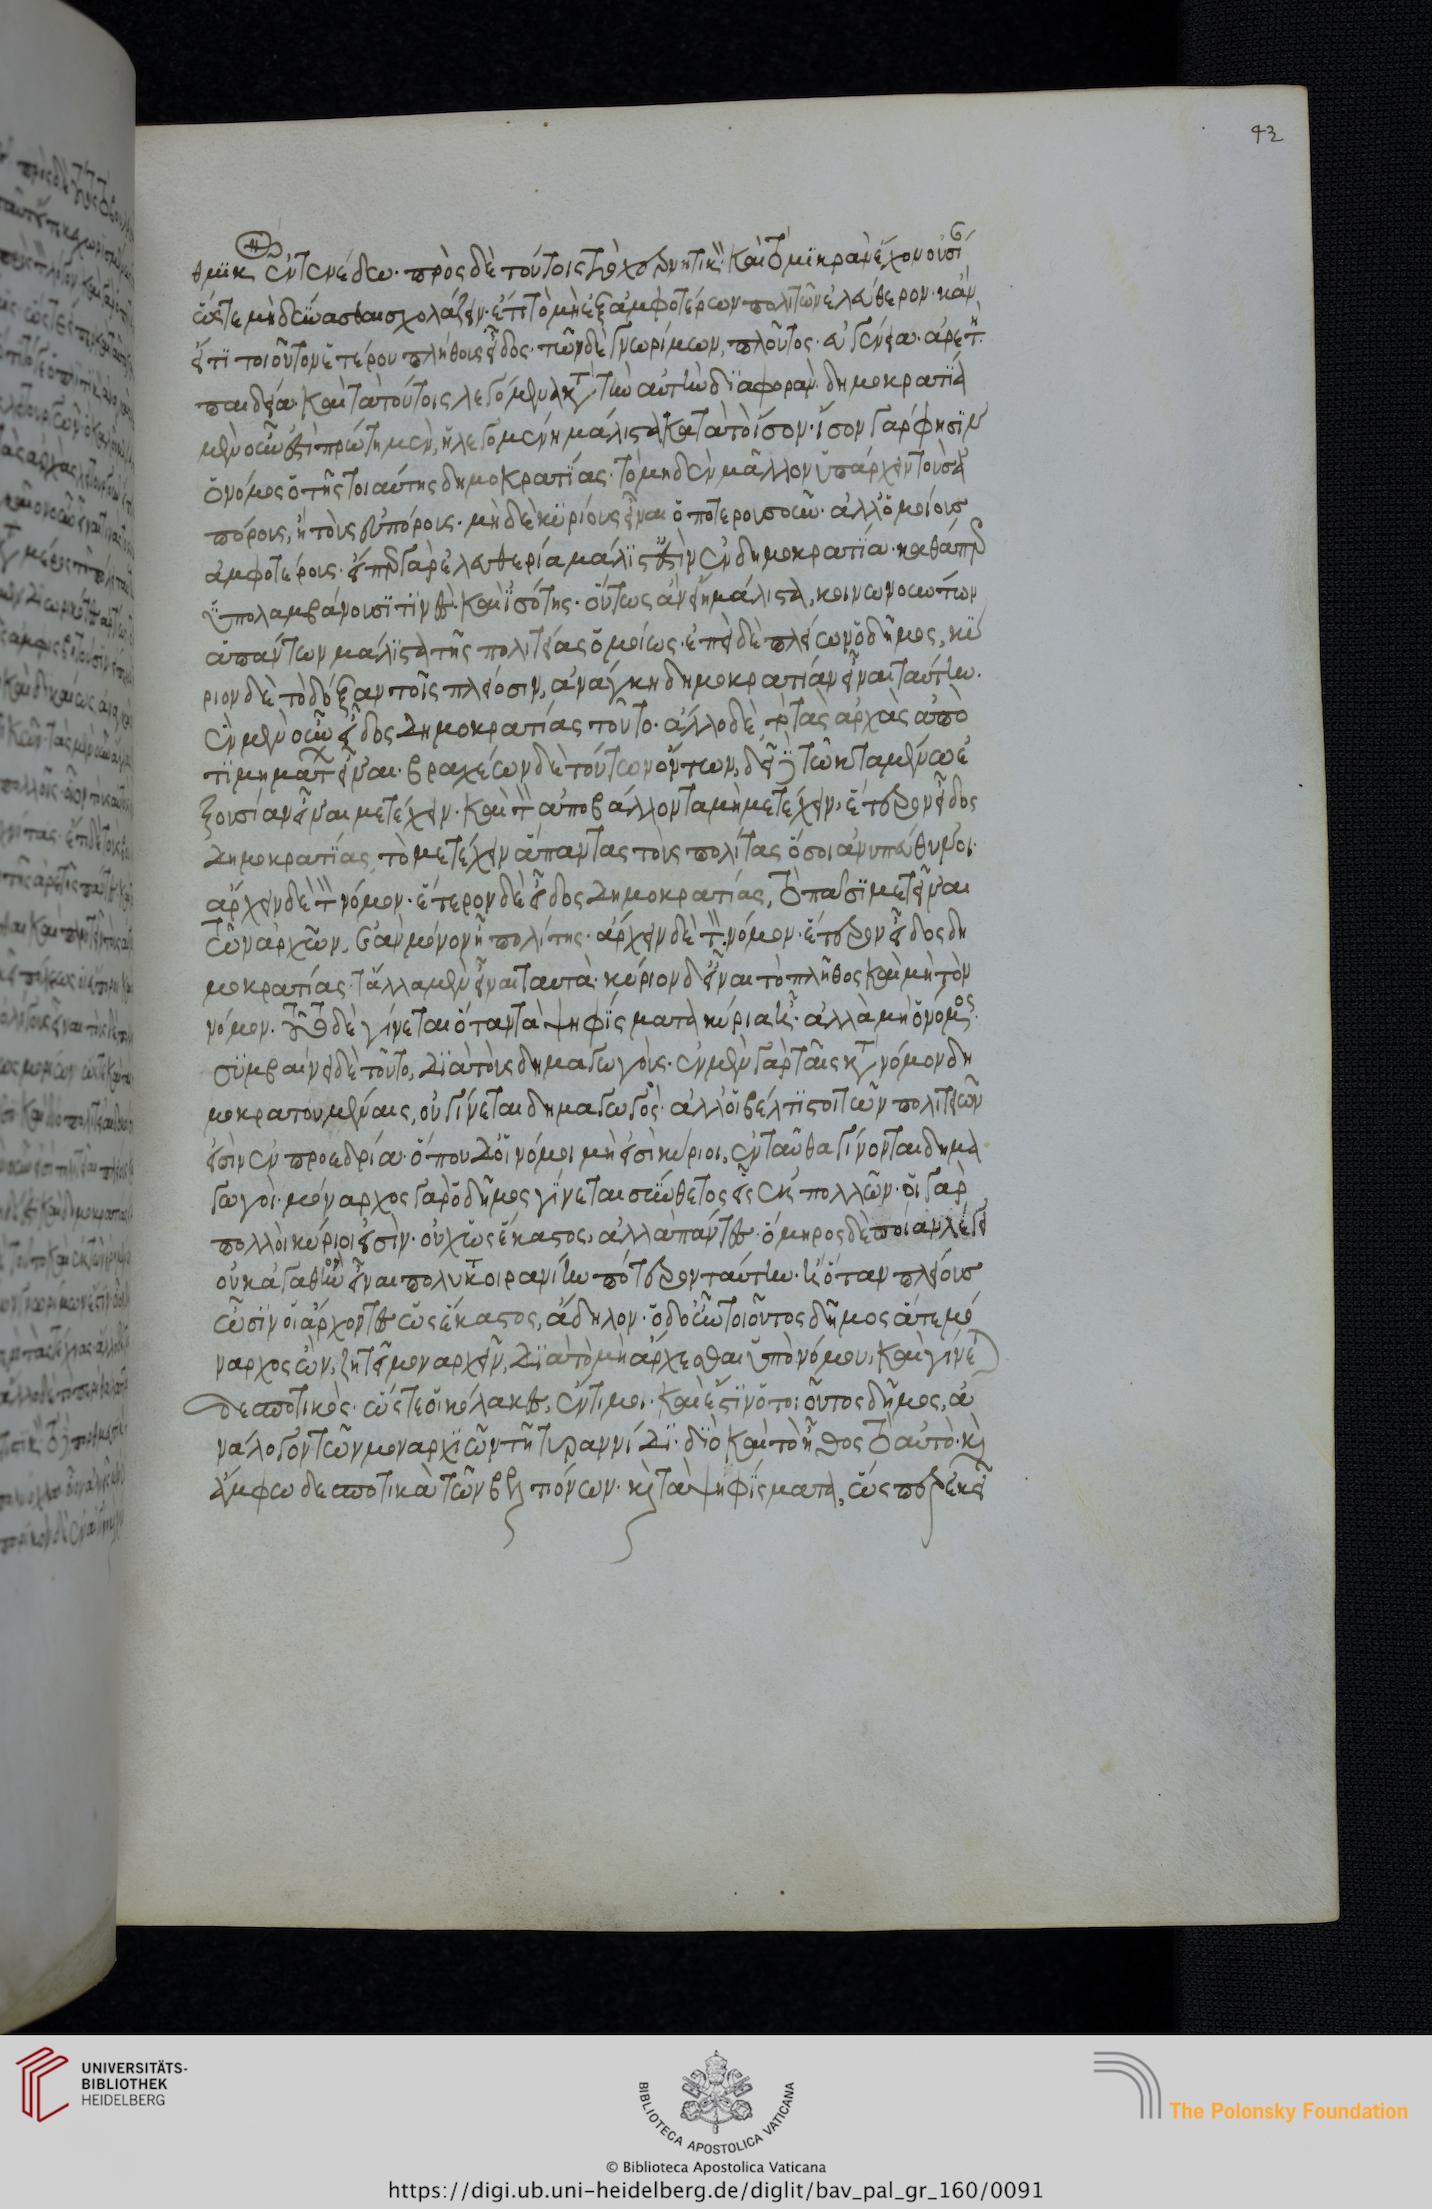 θμικὸν ἐν τενέδω· πρὸς δὲ τούτοις τὸ χερνητικὸν· καὶ τὸ μικρὰν ἔχον οὐσίαν
ὥστε μὴ δύνασθαι σχολάζειν· ἔτι τὸ μὴ ἐξ ἀμφοτέρων πολιτῶν ἐλεύθερον· κἂν
εἴ τι τοιοῦτον ἑτέρου πλήθους εἶδος· τῶν δὲ γνωρίμων, πλοῦτος· εὐγένεια· ἀρετὴ·
παιδεία· καὶ τὰ τούτοις λεγόμενα κατὰ τὴν αὐτὴν διαφορὰν· δημοκρατία
μὲν οὖν ἐστὶ πρώτη μὲν, ἡ λεγομένη μάλιστα κατὰ τὸ ἴσον· ἴσον γάρ φησιν
ὁ νόμος ὁ τῆς τοιαύτης δημοκρατίας· τὸ μηδὲν μᾶλλον ὑπάρχειν τοὺς ἀ
πόρους, ἢ τοὺς εὐπόρους· μηδὲ κυρίους εἶναι ὁποτεροισοῦν· ἀλλ' ὁμοίους
ἀμφοτέρους· εἴπερ γὰρ ἐλευθερία μάλιστ' ἐστὶν ἐν δημοκρατία· καθάπερ
ὑπολαμβάνουσί τινες· καὶ ἰσότης· οὕτως ἂν εἴη μάλιστα, κοινωνούντων
ἁπάντων μάλιστα τῆς πολιτείας ὁμοίως· ἐπεὶ δὲ πλείων ὁ δῆμος, κύ
ριον δὲ τὸ δόξαν τοῖς πλείοσιν, ἀνάγκη δημοκρατίαν εἶναι ταύτην·
ἓν μὲν οὖν εἶδος δημοκρατίας τοῦτο· ἄλλο δὲ, τὸ τὰς ἀρχὰς ἀπὸ
τιμημάτων εἶναι· βραχέων δὲ τούτων ὄντων, δεῖ δὲ τῶ κταμένω ἐ
ξουσίαν εἶναι μετέχειν· καὶ τὸν ἀποβάλλοντα μὴ μετέχειν· ἕτερον εἶδος
δημοκρατίας, τὸ μετέχειν ἅπαντας τοὺς πολίτας ὅσοι ἀνυπεύθυνοι·
ἄρχειν δὲ τὸν νόμον· ἕτερον δὲ εἶδος δημοκρατίας, τὸ πᾶσι μετεῖναι
τῶν ἀρχῶν, ἐὰν μόνον ἦ πολίτης· ἄρχειν δὲ τὸν νόμον· ἕτερον εἶδος δη
μοκρατίας· τἄλλα μὲν εἶναι ταυτά· κύριον δ' εἶναι τὸ πλῆθος καὶ μὴ τὸν
νόμον· τοῦτο δὲ γίνεται ὅταν τὰ ψηφίσματα κύρια ἦ· ἀλλὰ μὴ ὁ νόμος·
συμβαίνει δὲ τοῦτο, διὰ τοὺς δημαγωγούς· ἐν μὲν γὰρ ταῖς κατὰ νόμον δη
μοκρατουμέναις, οὐ γίνεται δημαγωγός· ἀλλ' οἱ βέλτιστοι τῶν πολιτῶν
εἰσὶν ἐν προεδρία· ὅπου δ' οἱ νόμοι μή εἰσι κύριοι, ἐνταῦθα γίνονται δημα
γωγοί· μόναρχος γὰρ ὁ δῆμος γίνεται σύνθετος εἷς ἐκ πολλῶν· οἱ γὰρ
πολλοὶ κύριοί εἰσιν· οὐχ ὡς ἕκαστος, ἀλλὰ πάντες· ὅμηρος δὲ ποίαν λέγει
οὐκ ἀγαθὸν εἶναι πολυκοιρανίην πότερον ταύτην· ἢ ὅταν πλείους
ὦσιν οἱ ἄρχοντες ὡς ἕκαστος, ἄδηλον· ὁ δ' οὖν τοιοῦτος δῆμος ἅτε μό
ναρχος ὢν, ζητεῖ μοναρχεῖν, διὰ τὸ μὴ ἄρχεσθαι ὑπὸ νόμου, καὶ γίνεται
δεσποτικός· ὥστε οἱ κόλακες, ἔντιμοι· καὶ ἔστιν ὁ τοιοῦτος δῆμος, ἀ
νάλογον τῶν μοναρχιῶν τῆ τυραννίδι· διὸ καὶ τὸ ἦθος τὸ αὐτό· καὶ
ἄμφω δεσποτικὰ τῶν βελτιόνων· καὶ τὰ ψηφίσματα, ὥσπερ ἐκεῖ
42
UNIVERSITÄTS-
BIBLIOTHEK
HEIDELBERG
BIBLIOTECA APOSTOLICA VATICANA
© Biblioteca Apostolica Vaticana
The Polonsky Foundation
https://digi.ub.uni-heidelberg.de/diglit/bav_pal_gr_160/0091